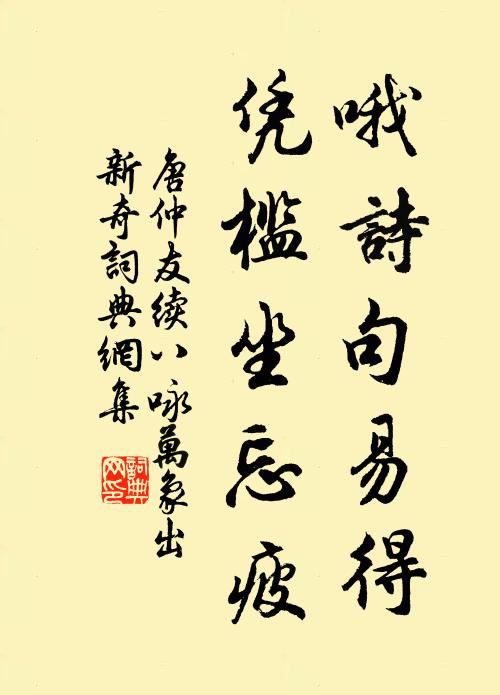 哦詩句易得
凭檻坐忘疲
唐仲友续八咏萬象出
新奇詞典網集
詞典
网印